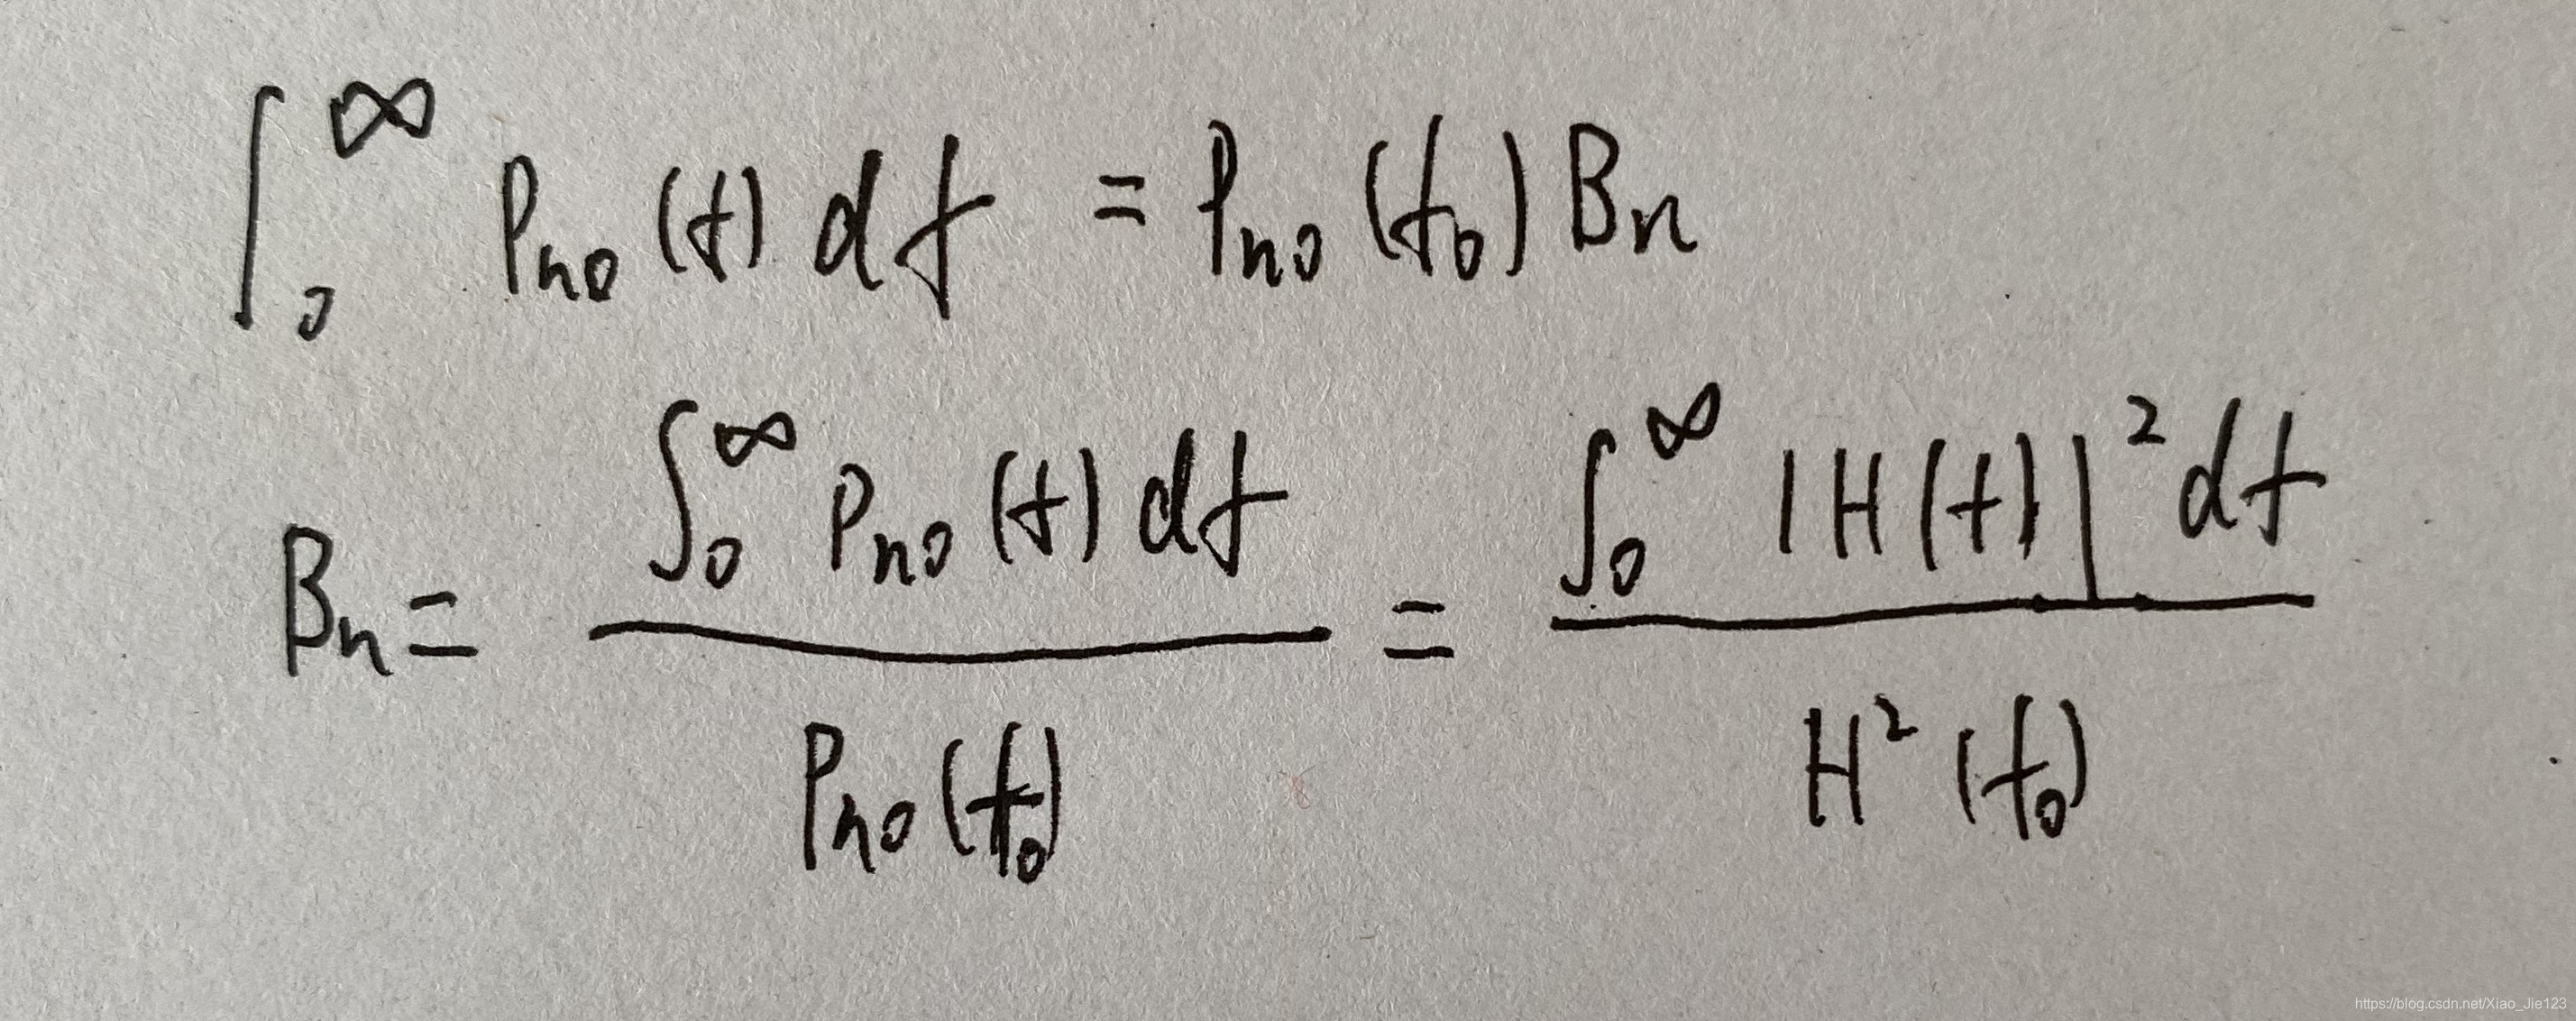 ∫₀^∞ Pno(f) df = Pno(f₀) Bn
Bn = ∫₀^∞ Pno(f) df / Pno(f₀) = ∫₀^∞ |H(f)|² df / H²(f₀)
https://blog.csdn.net/Xiao_Jie123